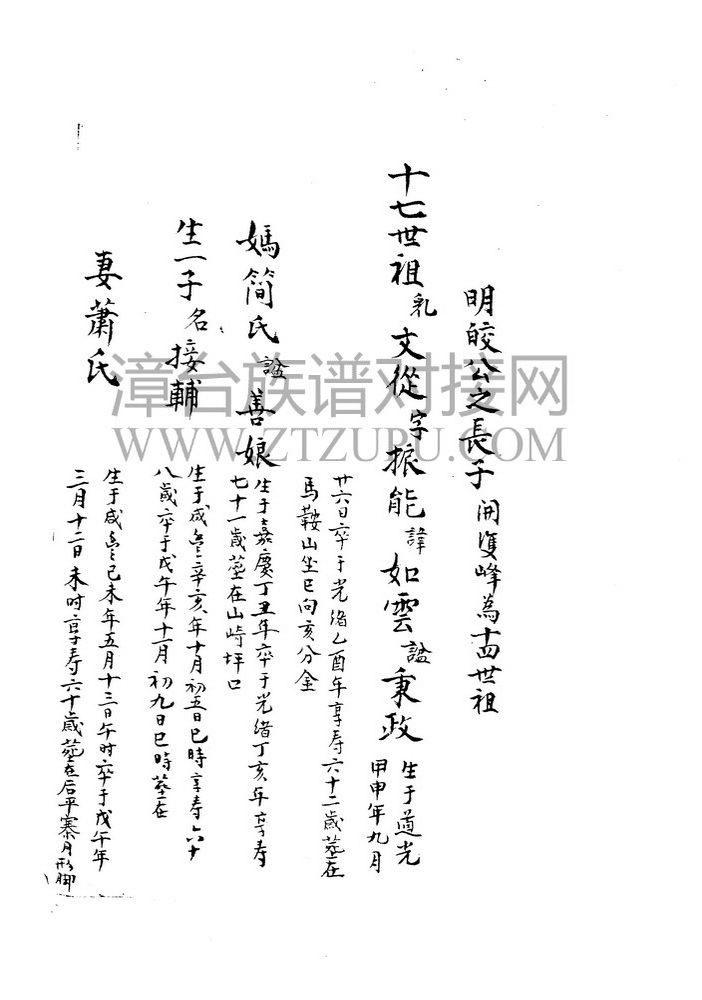 明皎公之長子 開復峰為十四世祖
十七世祖 乳 文從 字 振能 諱 如雲 謚 秉政 生于道光
甲申年九月
廿六日卒于光緒乙酉年享寿六十二歲墓在
馬鞍山坐巳向亥分金
媽简氏 謚 善娘 生于嘉慶丁丑年卒于光绪丁亥年享寿
七十一歲墓在山崎坪口
生一子 名 接輔 生于咸豊辛亥年十月初五日巳時享寿六十
八歲卒于戊午年十一月初九日巳時墓在
妻蕭氏 生于咸豊己未年五月十三日午时卒于戊午年
三月十二日未时享寿六十歲墓在后平寨月形脚
漳台族谱对接网
WWW.ZTZUPU.COM